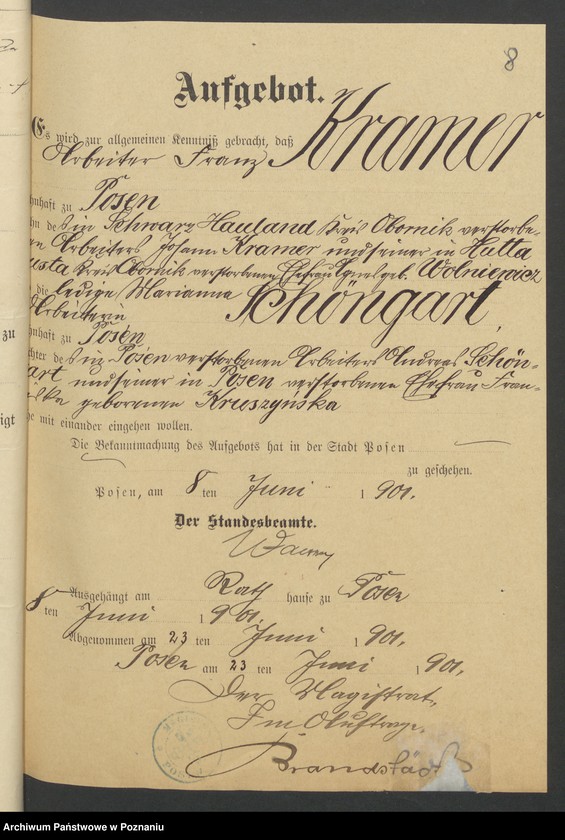 8
Aufgebot.
Es wird zur allgemeinen Kenntniß gebracht, daß
Arbeiter Franz Kramer
hnhaft zu Posen
hn des in Schwarz Hauland Kreis Obornik verstorbe-
en Arbeiters Johann Kramer und seiner in Hutta
usta Kreis Obornik verstorbenen Ehefrau Agnes geb. Wolniewicz
die ledige Marianna Schöngart,
Arbeiterin
hnhaft zu Posen
chter des in Posen verstorbenen Arbeiters Andreas Schön-
art und seiner in Posen verstorbenen Ehefrau Fran-
ziska geborenen Kruszyńska
he mit einander eingehen wollen.
Die Bekanntmachung des Aufgebots hat in der Stadt Posen
zu geschehen.
Posen, am 8 ten Juni 1901.
Der Standesbeamte.
Ausgehängt am Rath hause zu Posen
8 ten Juni 1901.
Abgenommen am 23 ten Juni 1901.
Posen am 23 ten Juni 1901.
Der Magistrat.
Im Auftrage.
Brandstädt
zu
igt
Archiwum Państwowe w Poznaniu